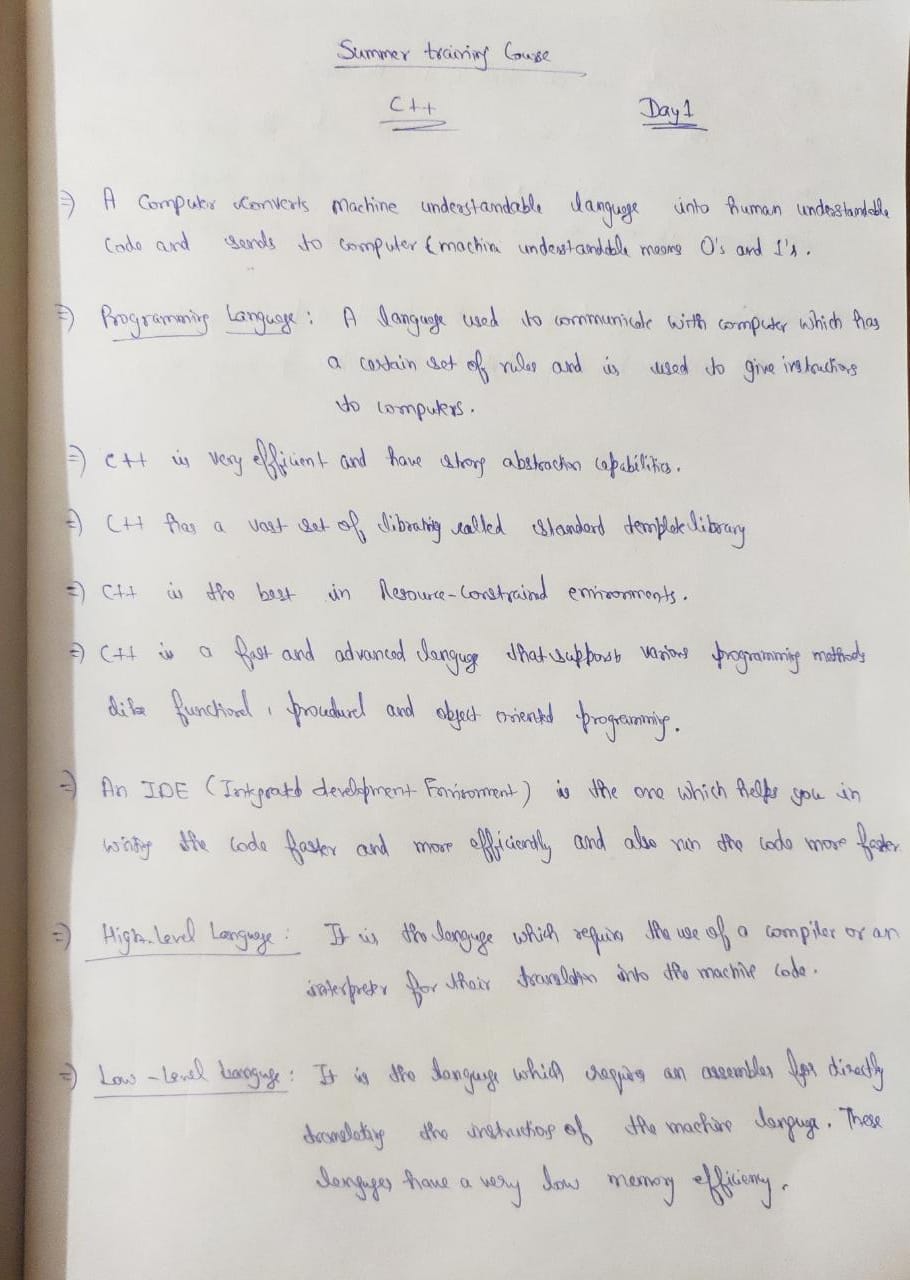 Summer training Course
C++ Day 1
⇒ A Computer converts machine understandable language into human understandable
Code and sends to computer (machine understandable means 0's and 1's.
⇒ Programming Language : A language used to communicate with computer which has
a certain set of rules and is used to give instructions
to computers.
⇒ C++ is very efficient and have strong abstraction capabilities.
⇒ C++ has a vast set of libraries called standard template library
⇒ C++ is the best in Resource-Constraind environments.
⇒ C++ is a fast and advanced language that supports various programming methods
like functional, procedural and object oriented programming.
⇒ An IDE (Integrated development Environment) is the one which helps you in
writing the code faster and more efficiently and also run the code more faster.
⇒ High-level Language : It is the language which requires the use of a compiler or an
interpreter for their translation into the machine code.
⇒ Low-level Language : It is the language which requires an assembler for directly
translating the instructions of the machine language. These
languages have a very low memory efficiency.